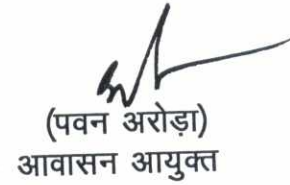 (पवन अरोड़ा)
आवासन आयुक्त